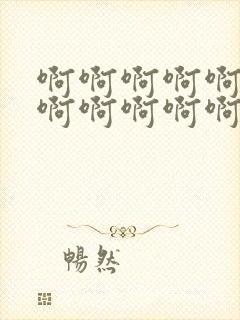 啊啊啊啊啊
啊啊啊啊啊
暢然